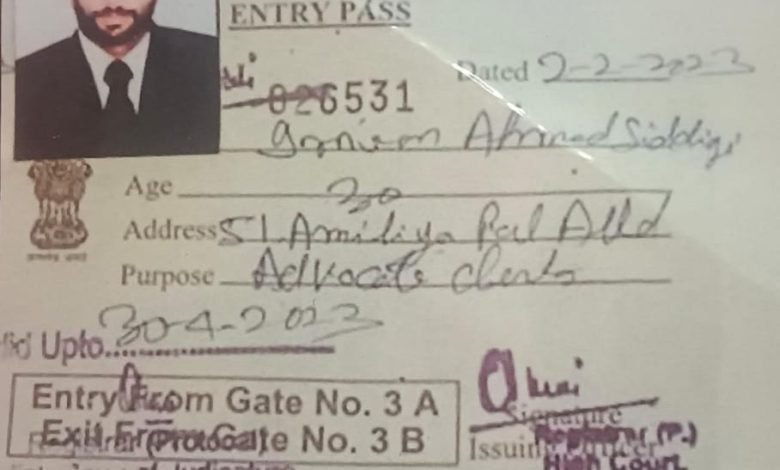 ENTRY PASS
Dated 2-2-2023
026531
Ahmad Siddiqi
Age 30
Address 51 Amiliya Alld
Purpose Advocate
Upto 30-4-2023
Entry From Gate No. 3 A
Exit From Gate No. 3 B
(Protocol)
Signature
Issuing Officer
Registrar (P.)
High Court